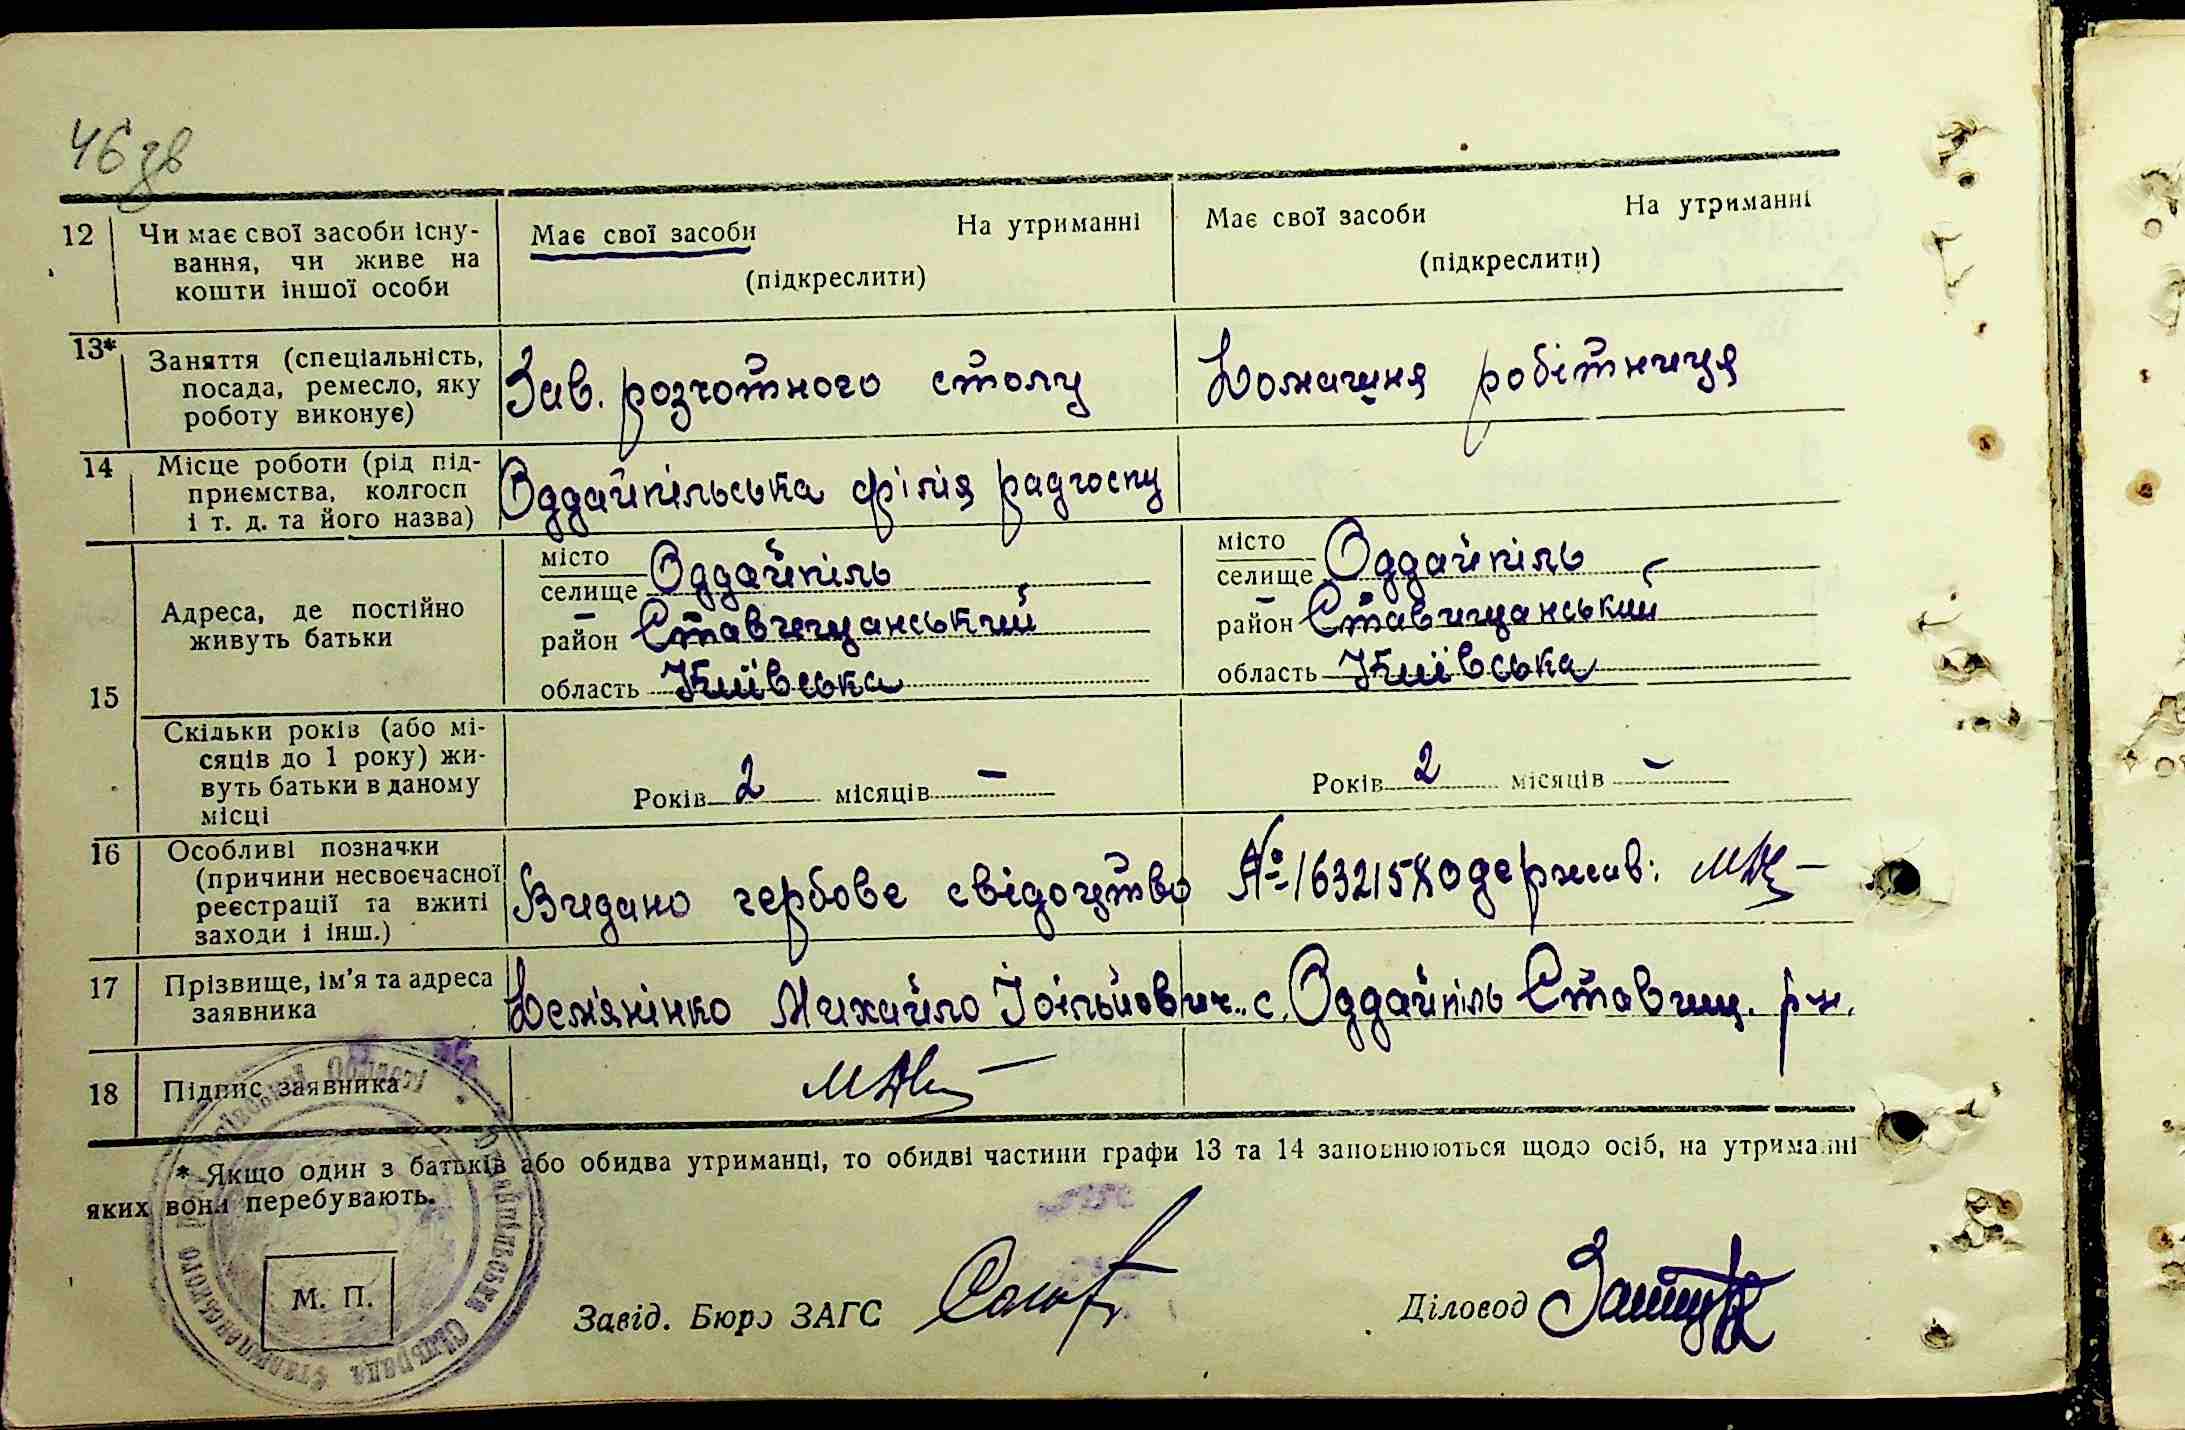 46 зв
12 Чи має свої засоби існу- Має свої засоби На утриманні Має свої засоби На утриманні
вання, чи живе на (підкреслити) (підкреслити)
кошти іншої особи
13* Заняття (спеціальність, Зав. розчотного столу Домашня робітниця
посада, ремесло, яку
роботу виконує)
14 Місце роботи (рід під- Оддайпільська філія радгоспу
приємства, колгосп
і т. д. та його назва)
15 Адреса, де постійно
живуть батьки
місто Оддайпіль місто Оддайпіль
селище селище
район Ставищанський район Ставищанський
область Київська область Київська
Скільки років (або мі-
сяців до 1 року) жи-
вуть батьки в даному Років 2 місяців – Років 2 місяців –
місці
16 Особливі позначки
(причини несвоєчасної Видано гербове свідоцтво № одержав:
реєстрації та вжиті
заходи і інш.)
17 Прізвище, ім'я та адреса Дем'янінко Михайло Йоільйович. с. Оддайпіль Ставищ. р-н.
заявника
18 Підпис заявника
* Якщо один з батьків або обидва утриманці, то обидві частини графи 13 та 14 заповнюються щодо осіб, на утриманні
яких вони перебувають.
М. П.
Завід. Бюро ЗАГС Діловод